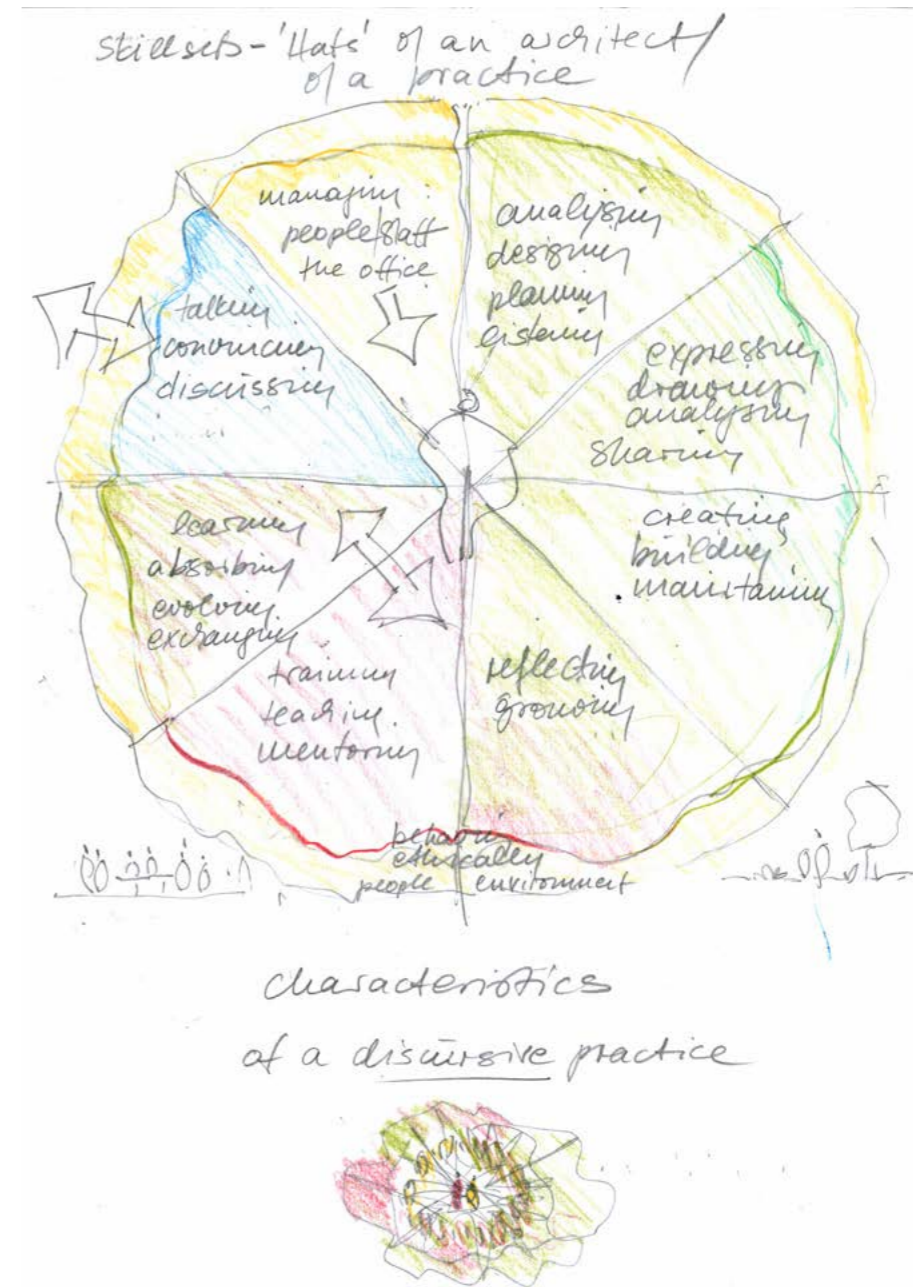 skillsets - 'Hats' of an architect/
of a practice
managing :
people/staff
the office
analysing
designing
planning
listening
expressing
drawing
analysing
sharing
creating
building
maintaining
reflecting
growing
training
teaching.
mentoring
learning
absorbing
evolving
exchanging
talking
convincing
discussing
behaving
ethically
people environment
characteristics
of a discursive practice